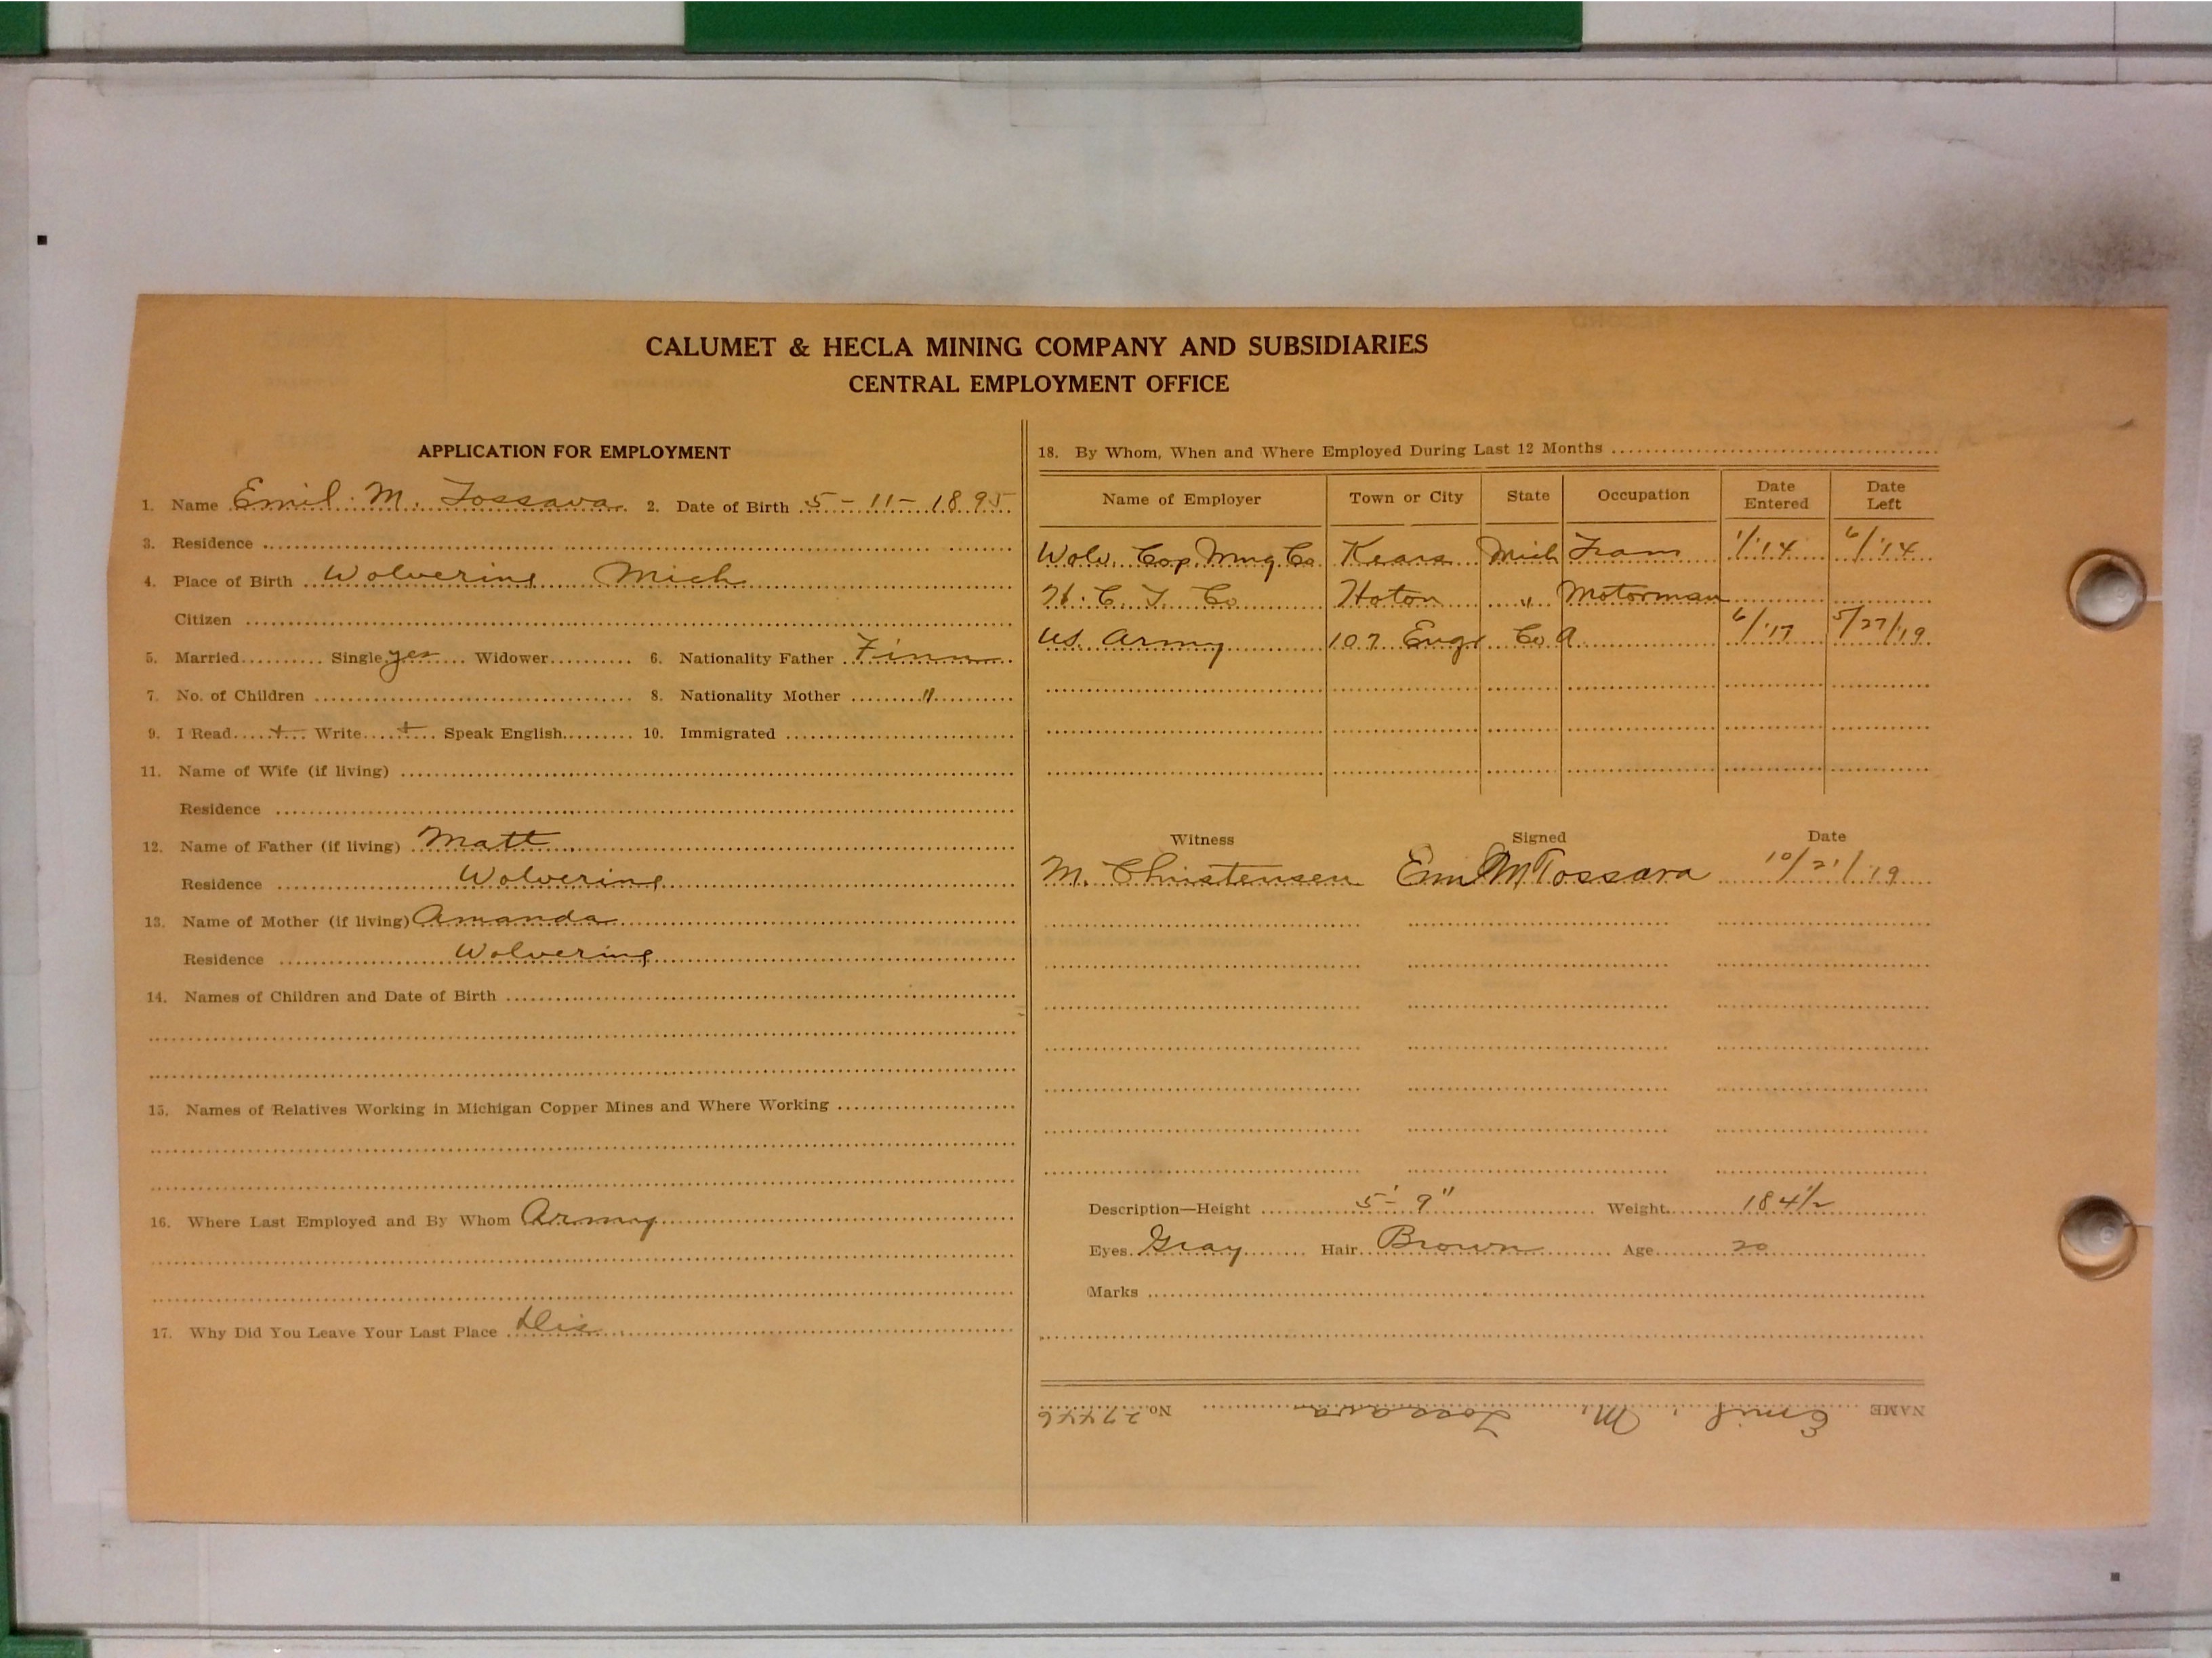 CALUMET & HECLA MINING COMPANY AND SUBSIDIARIES
CENTRAL EMPLOYMENT OFFICE
APPLICATION FOR EMPLOYMENT
1. Name Emil M. Tossava 2. Date of Birth 5-11-1895
3. Residence
4. Place of Birth Wolverine Mich
Citizen
5. Married Single yes Widower 6. Nationality Father Finn
7. No. of Children 8. Nationality Mother "
9. I Read + Write + Speak English 10. Immigrated
11. Name of Wife (if living)
Residence
12. Name of Father (if living) Matt
Residence Wolverine
13. Name of Mother (if living) Amanda
Residence Wolverine
14. Names of Children and Date of Birth
15. Names of Relatives Working in Michigan Copper Mines and Where Working
16. Where Last Employed and By Whom Army
17. Why Did You Leave Your Last Place Dis
18. By Whom, When and Where Employed During Last 12 Months
Name of Employer Town or City State Occupation Date Entered Date Left
Wolv. Cop. Mng. Co Kears Mich Tram 1/'14 6/'14
H. C. T. Co Hoton " Motorman
US. Army 107 Engr Co A 6/'17 5/27/19
Witness Signed Date
M. Christensen Emil M Tossava 10/21/19
Description—Height 5'-9" Weight 184 1/2
Eyes Gray Hair Brown Age 20
Marks
NAME Emil. M. Tossava No. 27446